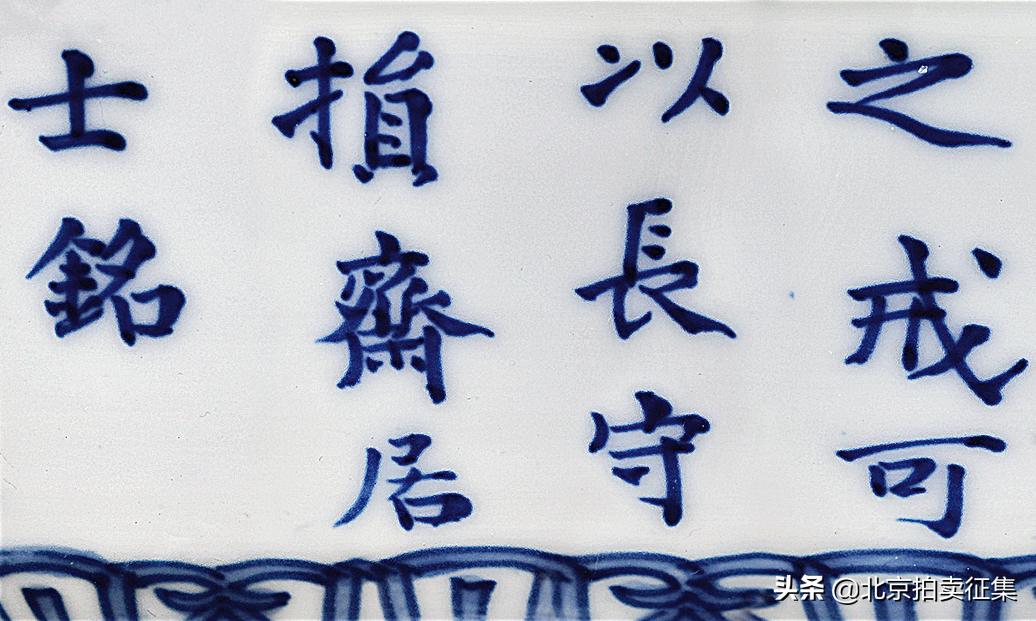 之戒可
以長守
損齋居
士銘
头条 @北京拍卖征集